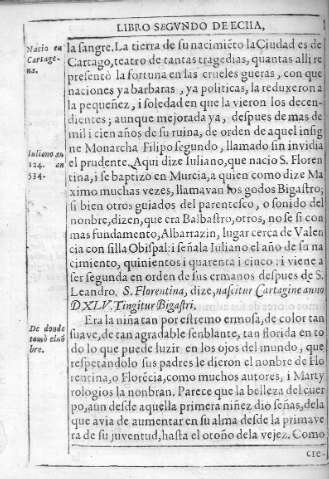 LIBRO SEGVNDO DE ECIIA,
Nacio en
Cartage-
na.
la sangre. La tierra de su nacimiẽto la Ciudad es de
Cartago, teatro de tantas tragedias, quantas alli re
presentò la fortuna en las crueles gueras, con que
naciones ya barbaras, ya politicas, la reduxeron a
la pequeñez, i soledad en que la vieron los decen-
dientes; aunque mejorada ya, despues de mas de
mil i cien años de su ruina, de orden de aquel insig
ne Monarcha Filipo segundo, llamado sin invidia
el prudente. Aqui dize Iuliano, que nacio S. Floren
Iuliano nu
324. en
534.
tina, i se baptizò en Murcia, a quien como dize Ma
ximo muchas vezes, llamavan los godos Bigastro;
si bien otros guiados del parentesco, o sonido del
nonbre, dizen, que era Balbastro, otros, no se si con
mas fundamento, Albarrazin, lugar cerca de Valen
cia con silla Obispal: i señala Iuliano el año de su na
cimiento, quinientos i quarenta i cinco: i viene a
ser segunda en orden de sus ermanos despues de S.
Leandro. S. Florentina, dize, nascitur Cartagine anno
DXLV. Tingitur Bigastri.
De donde
tomò el nõ
bre.
Era la niña tan por estremo ermosa, de color tan
suave, de tan agradable senblante, tan florida en to
do lo que puede luzir en los ojos del mundo, que
respetandolo sus padres le dieron el nonbre de Flo
rentina, o Florẽcia, como muchos autores, i Marty
rologios la nonbran. Parece que la belleza del cuer
po, aun desde aquella primera niñez dio señas, de la
que avia de aumentar en su alma desde la primave
ra de su juventud, hasta el otoño de la vejez. Como
cre-